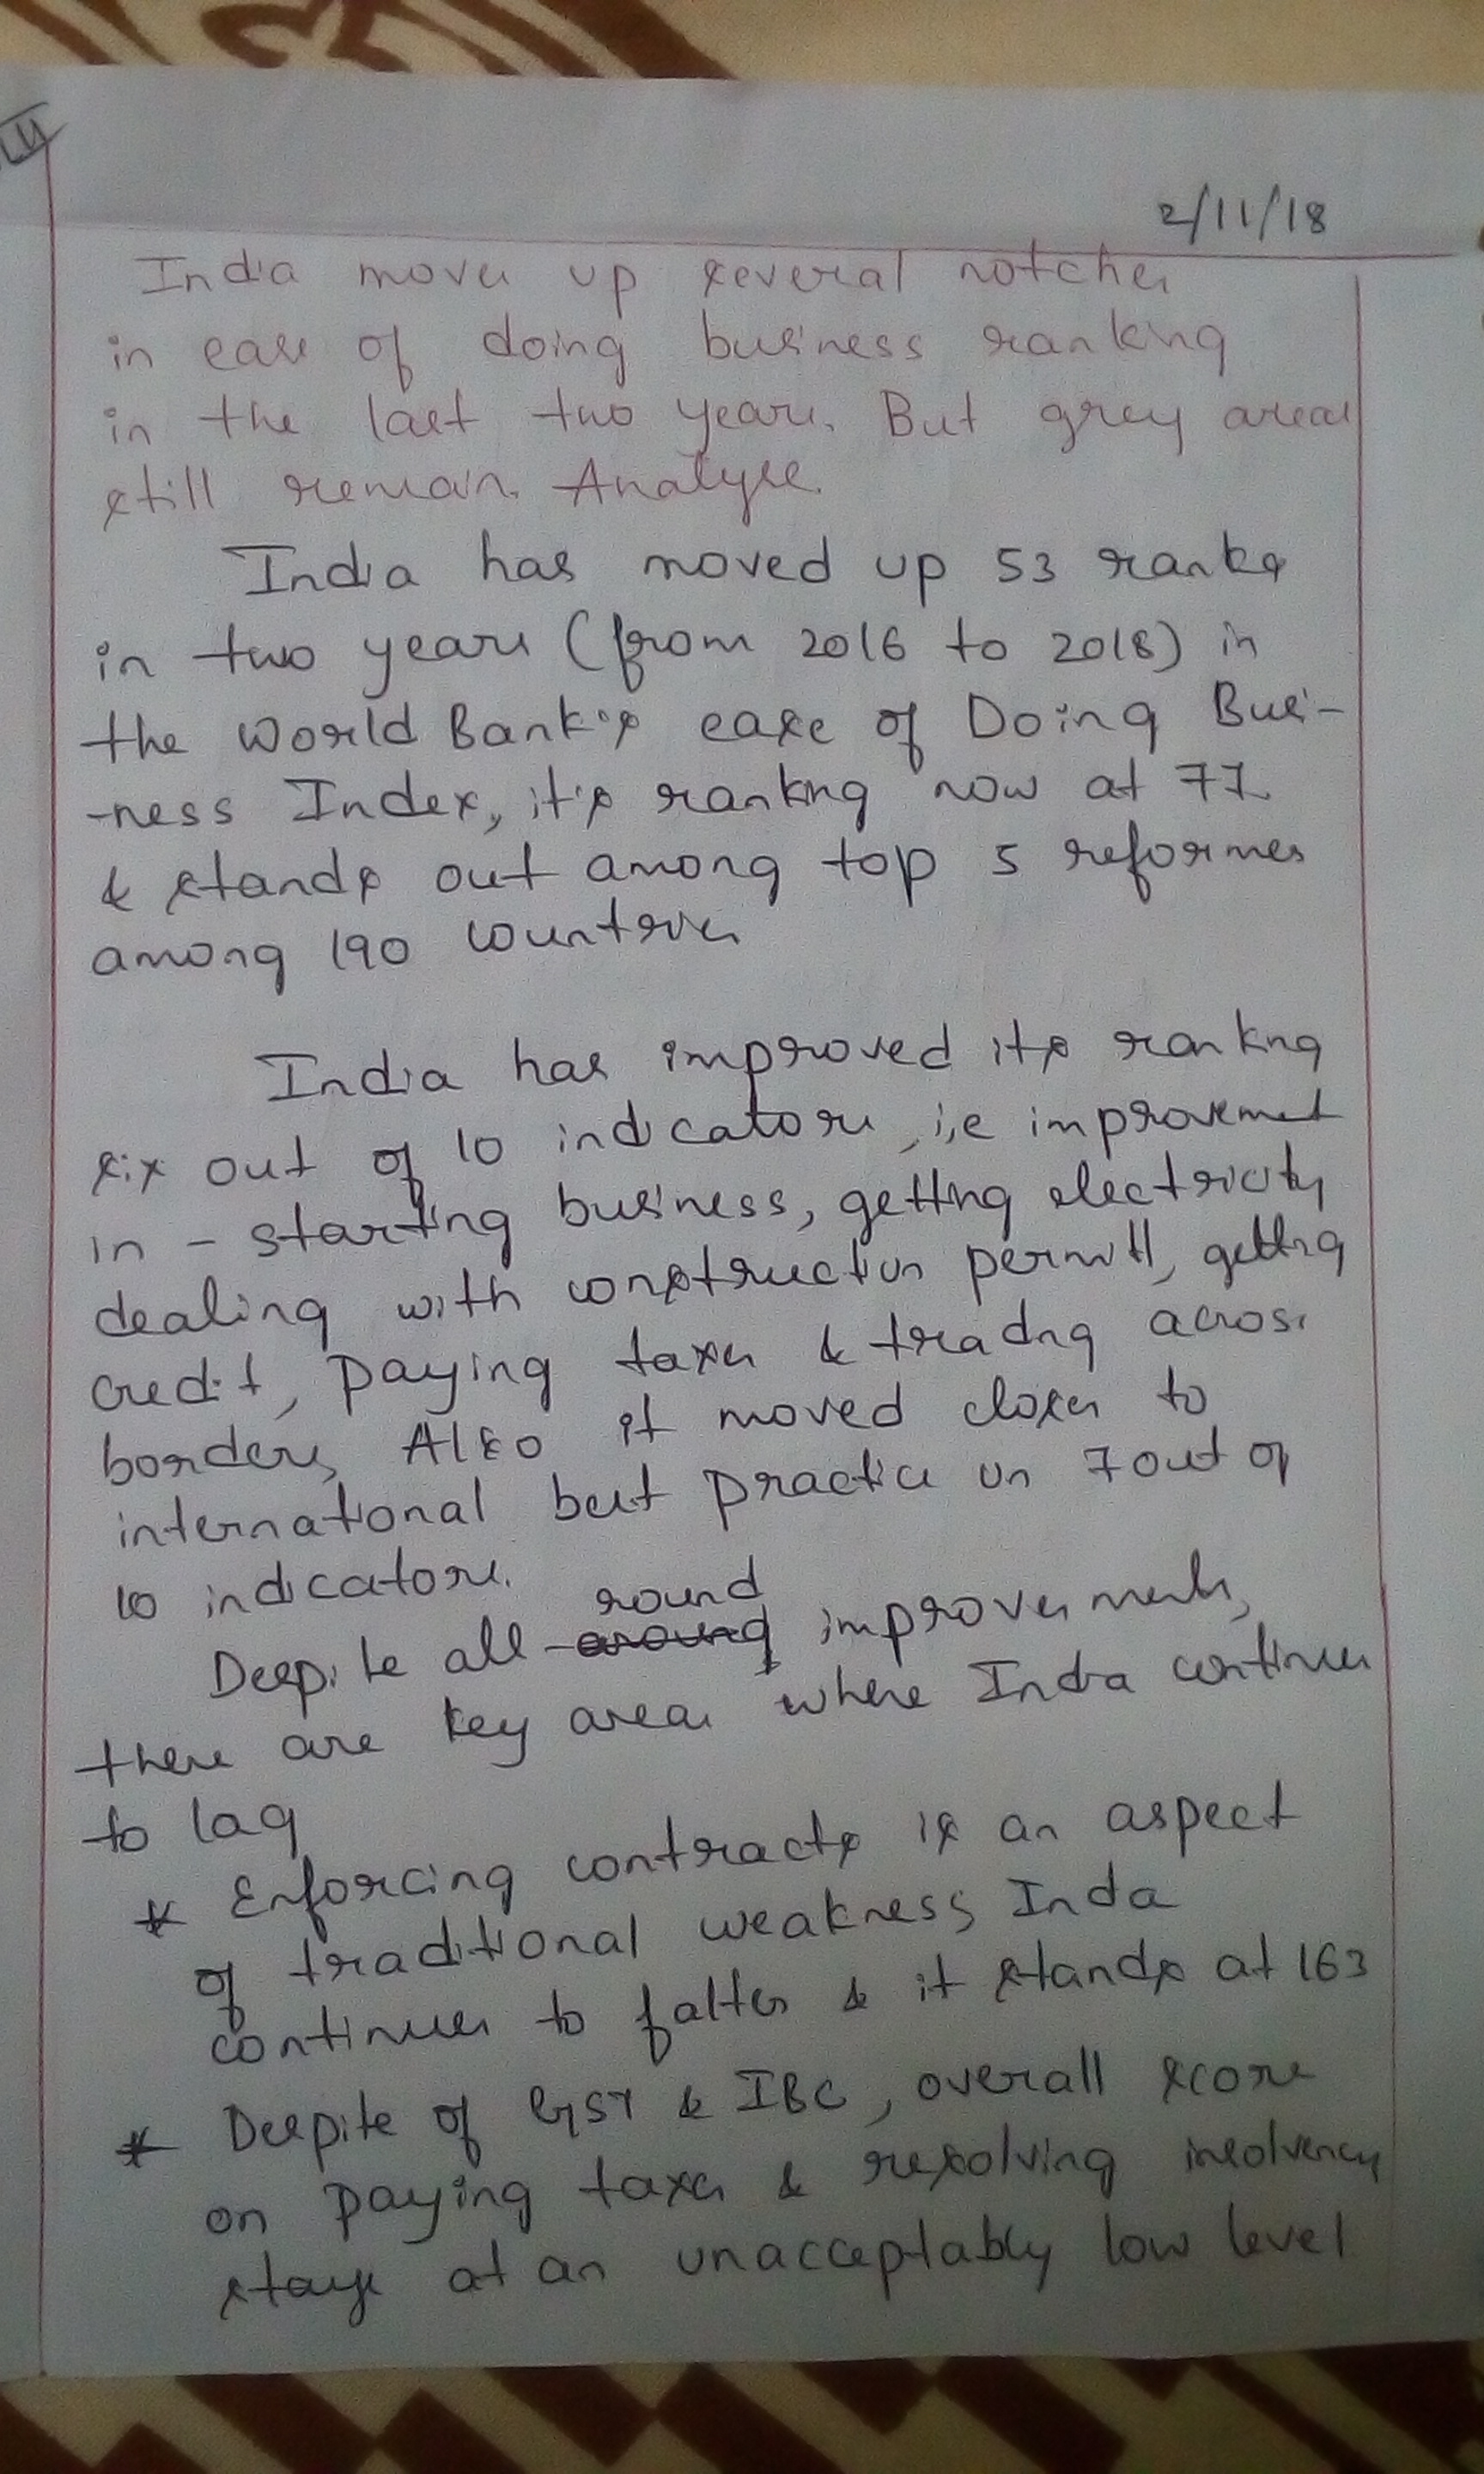 2/11/18
India moves up several notches
in ease of doing business ranking
in the last two years. But grey areas
still remain. Analyse.
India has moved up 53 ranks
in two years (from 2016 to 2018) in
the World Bank's ease of Doing Busi-
-ness Index, it's ranking now at 77
& stands out among top 5 reformes
among 190 countries
India has improved its ranking
six out of 10 indicators, i.e improvement
in - starting business, getting electricity
dealing with construction permitt, getting
credit, paying taxes & trading across
borders, Also it moved closer to
international best practice in 7 out of
10 indicators.
Despite all round improvements,
there are key areas where India continues
to lag
* Enforcing contracts is an aspect
of traditional weakness, India
continues to falter & it stands at 163
* Despite of GST & IBC, overall score
on paying taxes & resolving insolvency
stays at an unacceptably low level